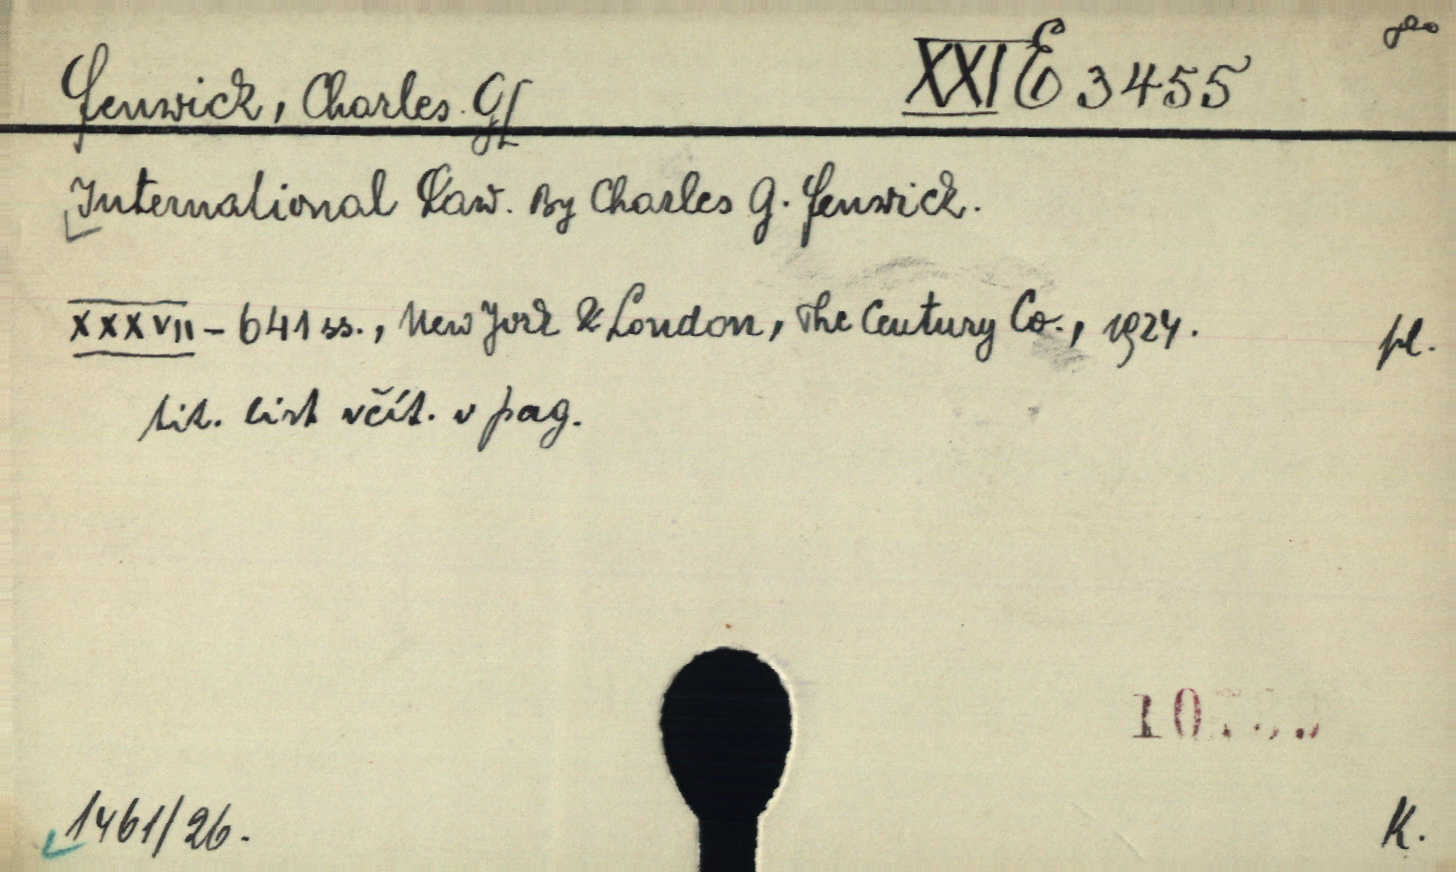 Fenwick, Charles G.
XXI E 3455
International Law. By Charles G. Fenwick.
XXXVII – 641 ss., New York & London, The Century Co., 1924.
pl.
tit. list včít. v pag.
1461/26.
K.